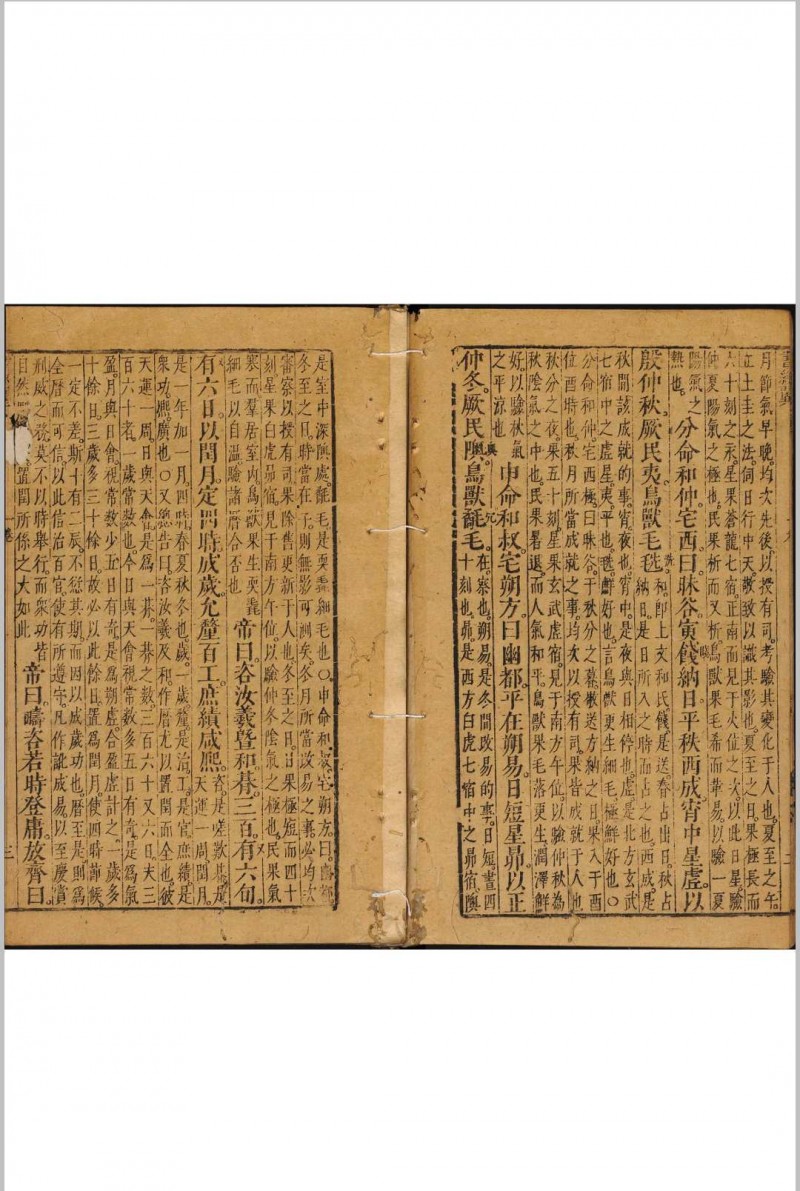 月節氣早晚均次先後以授有司考驗其變化于人也夏至之午
立土圭之法伺日行中天敬致以識其影也夏至之日果極長而
六十刻之永星果蒼龍七宿正南而見于火位之次以此日星驗
仲夏陽氣之極也民果析而又析鳥獸果毛希而革易以驗一夏
陽氣之
熱也
分命和仲宅西曰昧谷寅餞納日平秩西成宵中星虛以
殷仲秋厥民夷鳥獸毛毨
和即上文和氏餞是送春占出日秋占
納日是日所入之時而占之也西成是
秋間該成就的事宵夜也宵中是夜與日相停也虛是北方玄武
七宿中之虛星夷平也毨鮮好也言鳥獸更生細毛極鮮好也○
分命和仲宅西極曰昧谷于秋分之暮敬送方納之日果入于酉
位酉時也秋月所當成就之事均次以授有司果皆成就于人也
秋分之夜果五十刻星果玄武虛宿見于南方午位以驗仲秋為
秋陰氣之中也民果暑退而人氣和平鳥獸果毛落更生潤澤鮮
好以驗秋氣
之平涼也
申命和叔宅朔方曰幽都平在朔易日短星昴以正
仲冬厥民隩鳥獸氄毛
在察也朔易是冬間改易的事日短晝四
十刻也昴是西方白虎七宿中之昴宿隩
是室中深隩處氄毛是耎毳細毛也○申命和叔宅朔方曰幽都
冬至之日時當在子則無影可測矣冬月所當改易之事必均次
審察以授有司果除舊更新于人也冬至之日日果極短而四十
刻星果白虎昴宿見于南方午位以驗仲冬陰氣之極也民果氣
寒而羣居室內鳥獸果生耎毳
細毛以自温驗諸曆合否也
帝曰咨汝羲曁和朞三百有六旬
有六日以閏月定四時成歲允釐百工庶績咸熙
咨是嗟歎朞是
天運一周閏月
是一年加一月四時春夏秋冬也歲一歲釐是治工是官庶績是
衆功熙廣也○又總告曰咨汝羲及和作曆尤以置閏而全也彼
天運一周日與天會是爲一朞一朞之數三百六十又六日夫三
百六十者一歲常數也今日與天會視常數多五日有奇是爲氣
盈月與日會視常數少五日有奇是爲朔虛合盈虛計之一歲多
十餘日三歲多三十餘日故必以此餘日置爲閏月使四時節候
一定不差斯十有二辰不愆其期而因以成歲功也曆至是則爲
全曆而可信以此信治百官使有所遵守凡作訛成易以至慶賞
刑威之務莫不以時舉行而衆功皆
置閏所係之大如此
帝曰疇咨若時登庸放齊曰
三